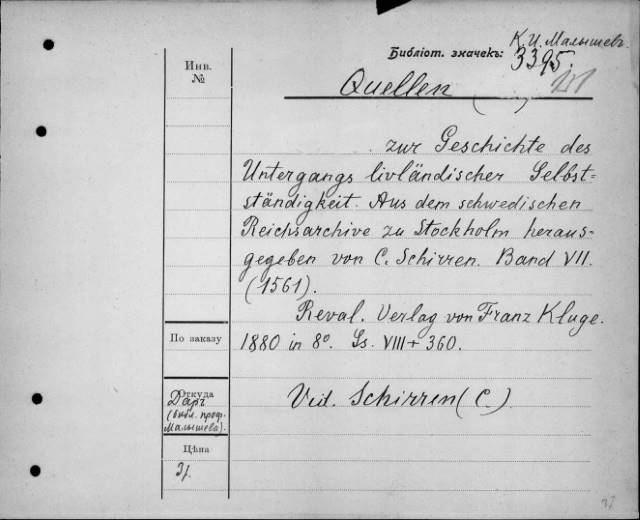 К. И. Малышевъ.
Библіот. значекъ: 3395.
Инв.
№
Quellen
zur Geschichte des
Untergangs livländischer Selbst=
ständigkeit. Aus dem schwedischen
Reichsarchive zu Stockholm heraus-
gegeben von C. Schirren. Band VII.
(1561).
Reval. Verlag von Franz Kluge.
По заказу
1880 in 8°. Ss. VIII + 360.
Откуда
Даръ
(библ. проф.
Малышева).
Vid. Schirren (C.)
Цѣна